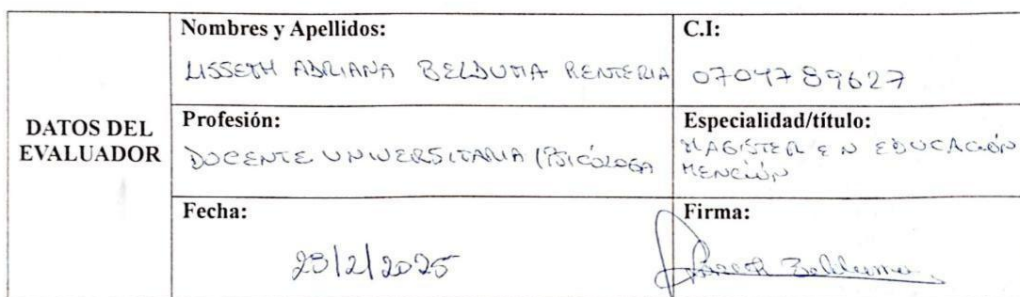 DATOS DEL
EVALUADOR
Nombres y Apellidos:
LISSETH ADRIANA BELDUMA RENTERIA
C.I:
0704789627
Profesión:
DOCENTE UNIVERSITARIA (PSICÓLOGA
Especialidad/título:
MAGISTER EN EDUCACIÓN
MENCIÓN
Fecha:
23/2/2025
Firma: